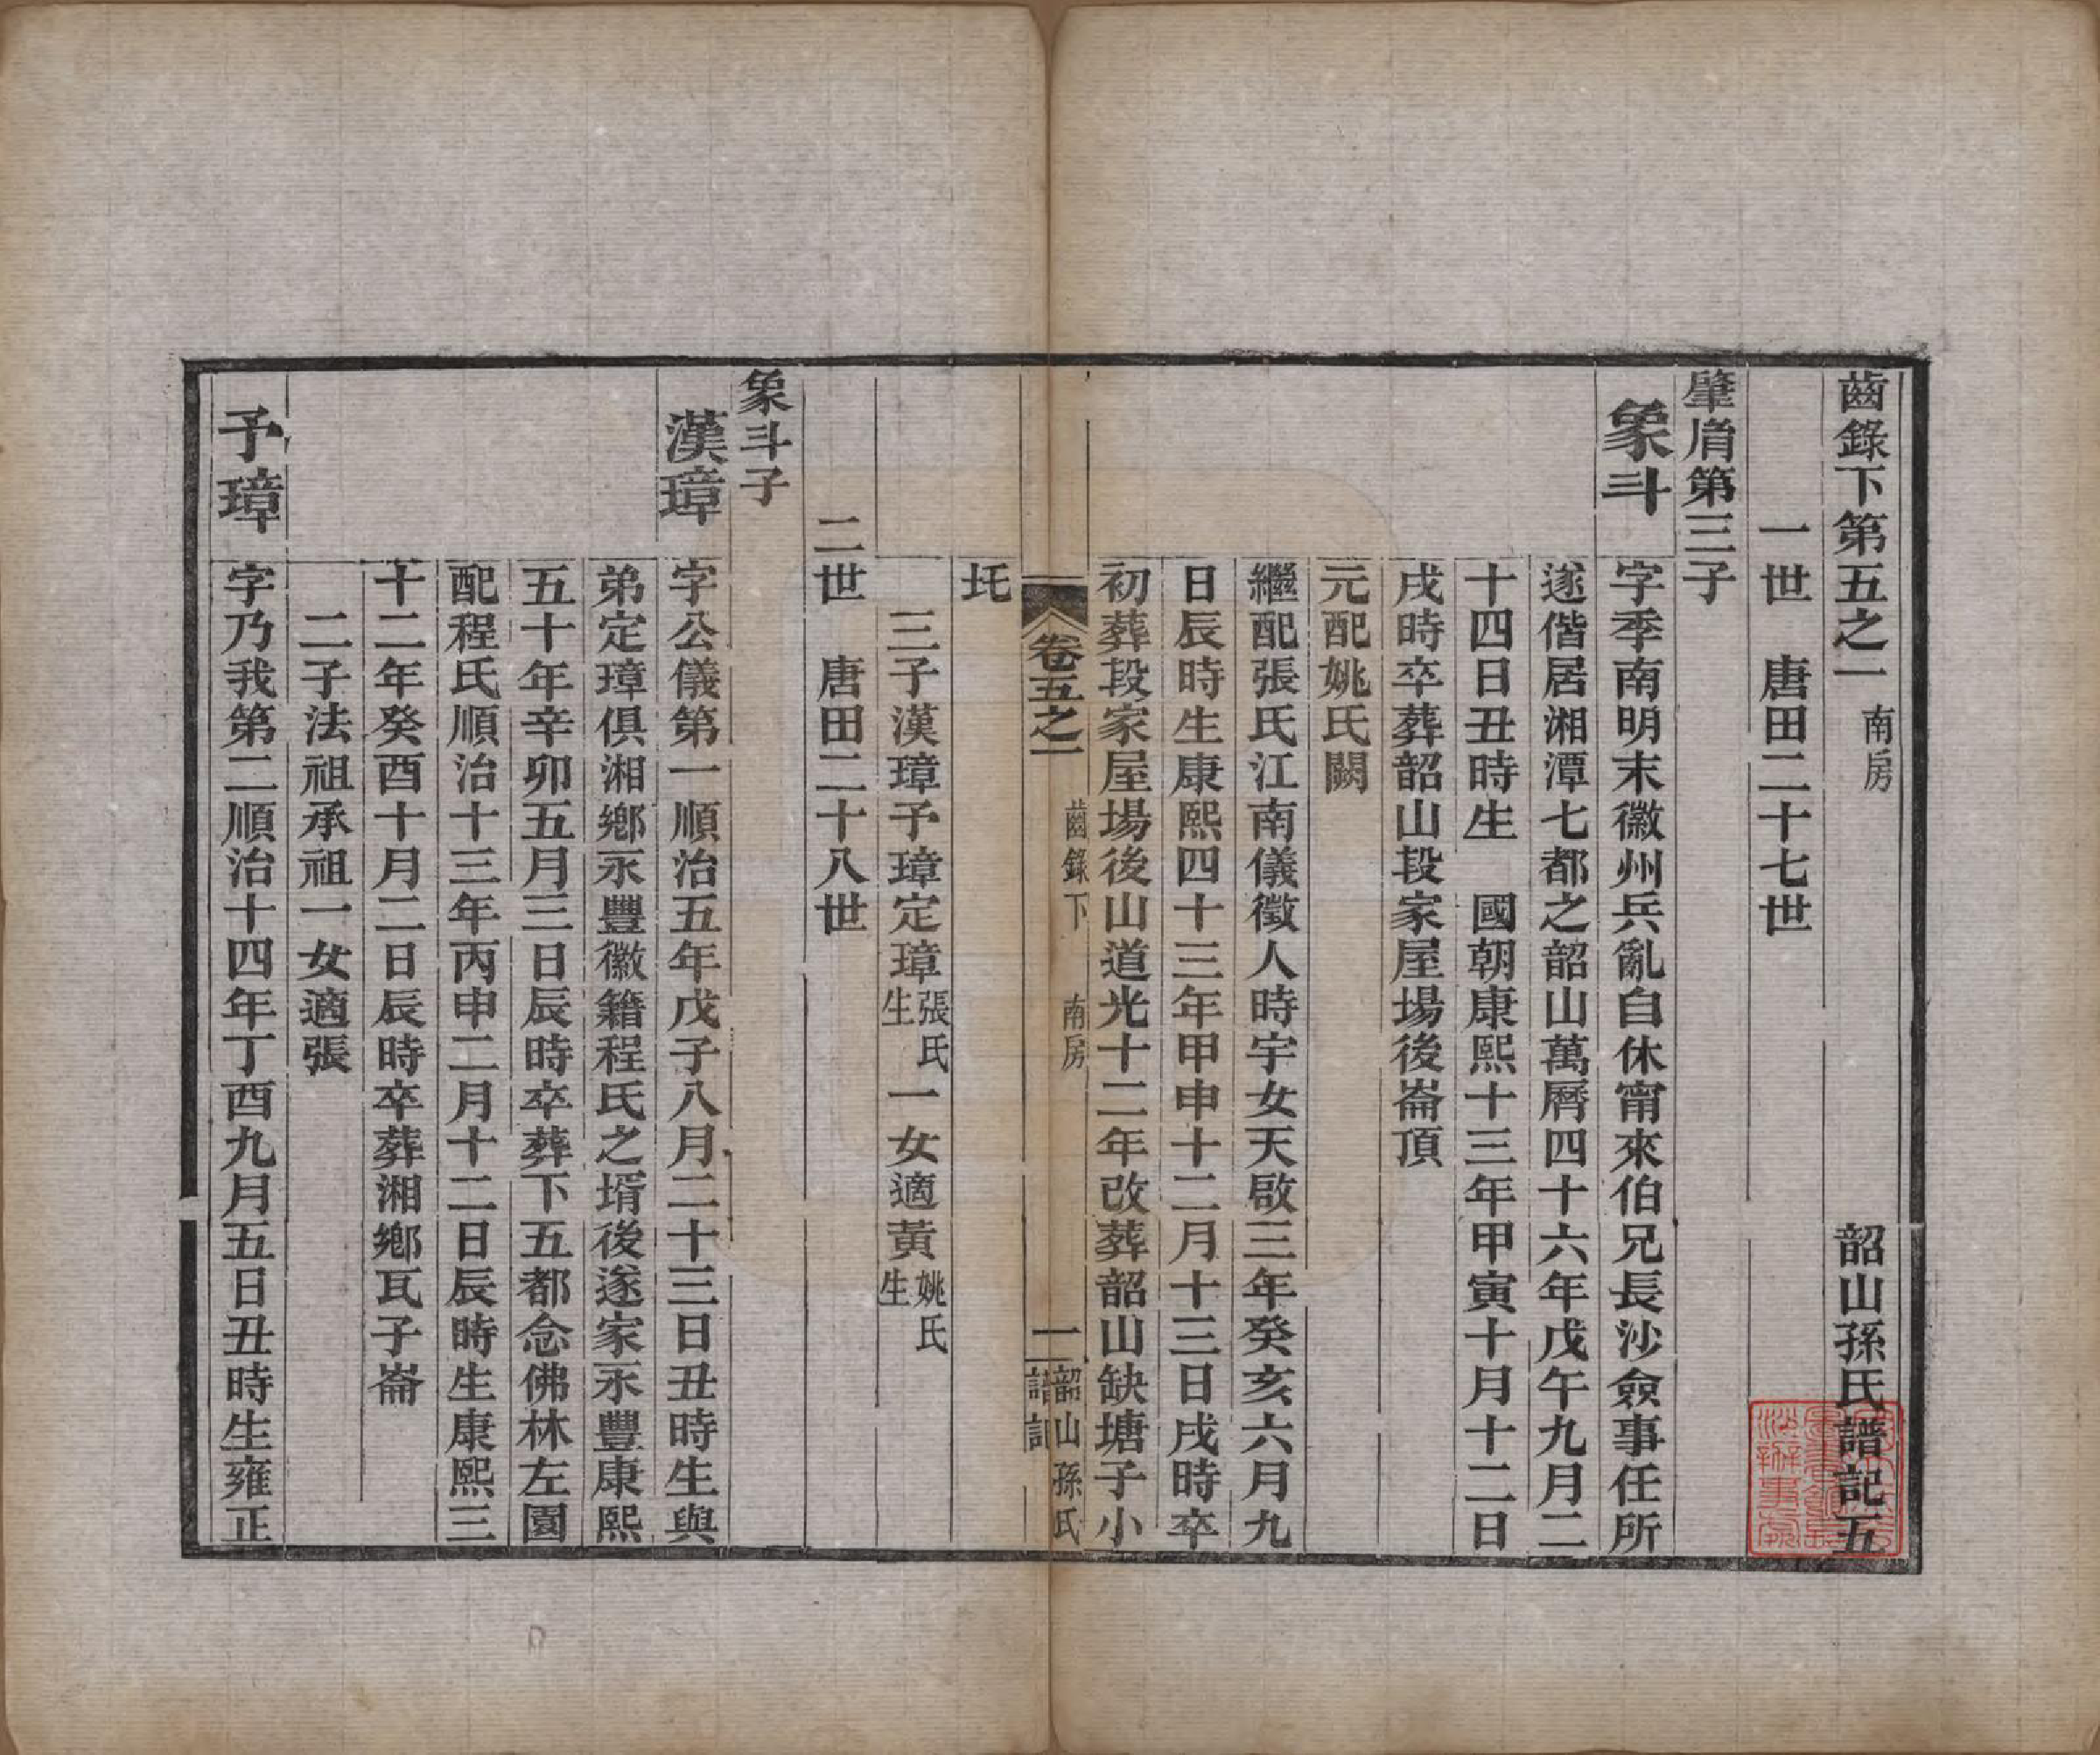 齒錄下第五之一 南房 韶山孫氏譜記五
一世 唐田二十七世
肇肩第三子
象斗 字季南明末徽州兵亂自休甯來伯兄長沙僉事任所
遂偕居湘潭七都之韶山萬曆四十六年戊午九月二
十四日丑時生 國朝康熙十三年甲寅十月十二日
戌時卒葬韶山段家屋場後崙頂
元配姚氏闕
繼配張氏江南儀徵人時宇女天啟三年癸亥六月九
日辰時生康熙四十三年甲申十二月十三日戌時卒
初葬段家屋場後山道光十二年改葬韶山缺塘子小
卷五之一 齒錄下 南房 一 韶山孫氏譜記
圫
三子漢璋予璋定璋張氏生一女適黃姚氏生
二世 唐田二十八世
象斗子
漢璋 字公儀第一順治五年戊子八月二十三日丑時生與
弟定璋俱湘鄉永豐徽籍程氏之壻後遂家永豐康熙
五十年辛卯五月三日辰時卒葬下五都念佛林左園
配程氏順治十三年丙申二月十二日辰時生康熙三
十二年癸酉十月二日辰時卒葬湘鄉瓦子崙
二子法祖承祖一女適張
予璋 字乃我第二順治十四年丁酉九月五日丑時生雍正